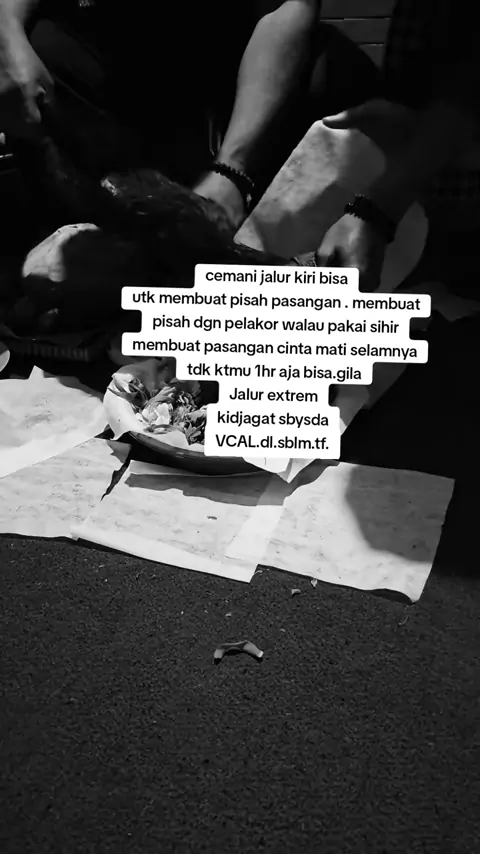 cemani jalur kiri bisa
utk membuat pisah pasangan . membuat
pisah dgn pelakor walau pakai sihir
membuat pasangan cinta mati selamnya
tdk ktmu 1hr aja bisa.gila
Jalur extrem
kidjagat sbysda
VCAL.dl.sblm.tf.